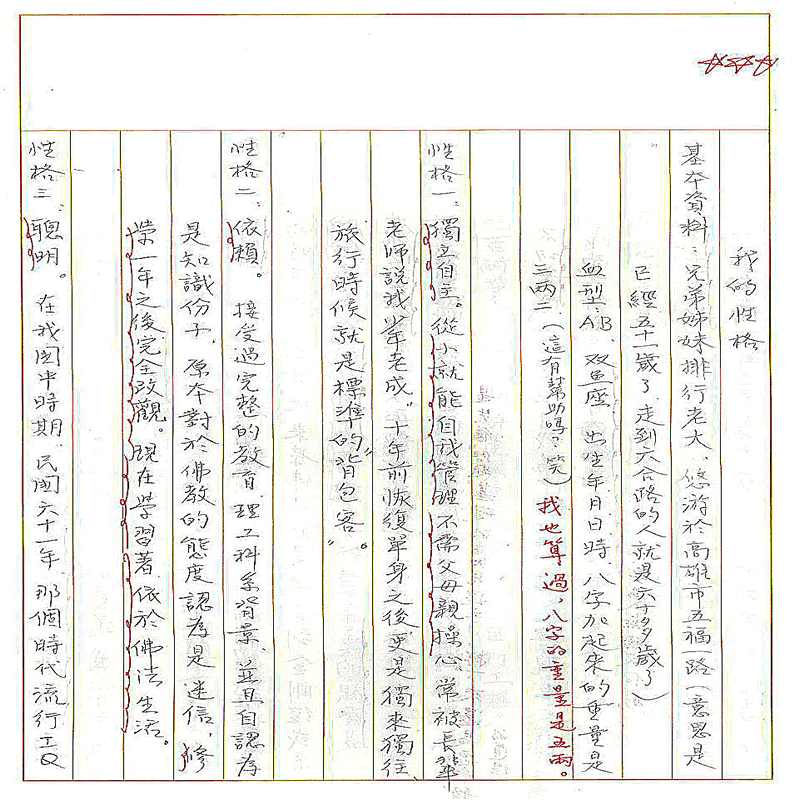 我的性格
基本資料：兄弟姊妹排行老大、悠游於高雄市五福一路（意思是
已經五十一歲了 走到六合路的人就是六十多歲了）
血型：AB、双鱼座、出生年月日時、八字加起來的重量是
三兩二（這有幫助嗎？笑）我也算過，八字的重量是五兩。
性格一：獨立自主。從小就能自我管理 不需父母親操心 常被長輩
老师說我"少年老成"。十年前恢復單身之後 更是獨來獨往
旅行時候就是標準的"背包客"。
性格二：依賴。接受過完整的教育、理工科系背景、並且自認為
是知識份子，原本對於佛教的態度認為是迷信，修
學一年之後完全改觀。現在學習著 依於佛法生活。
性格三：聰明。在我國中時期 民國六十一年 那個時代流行 IQ